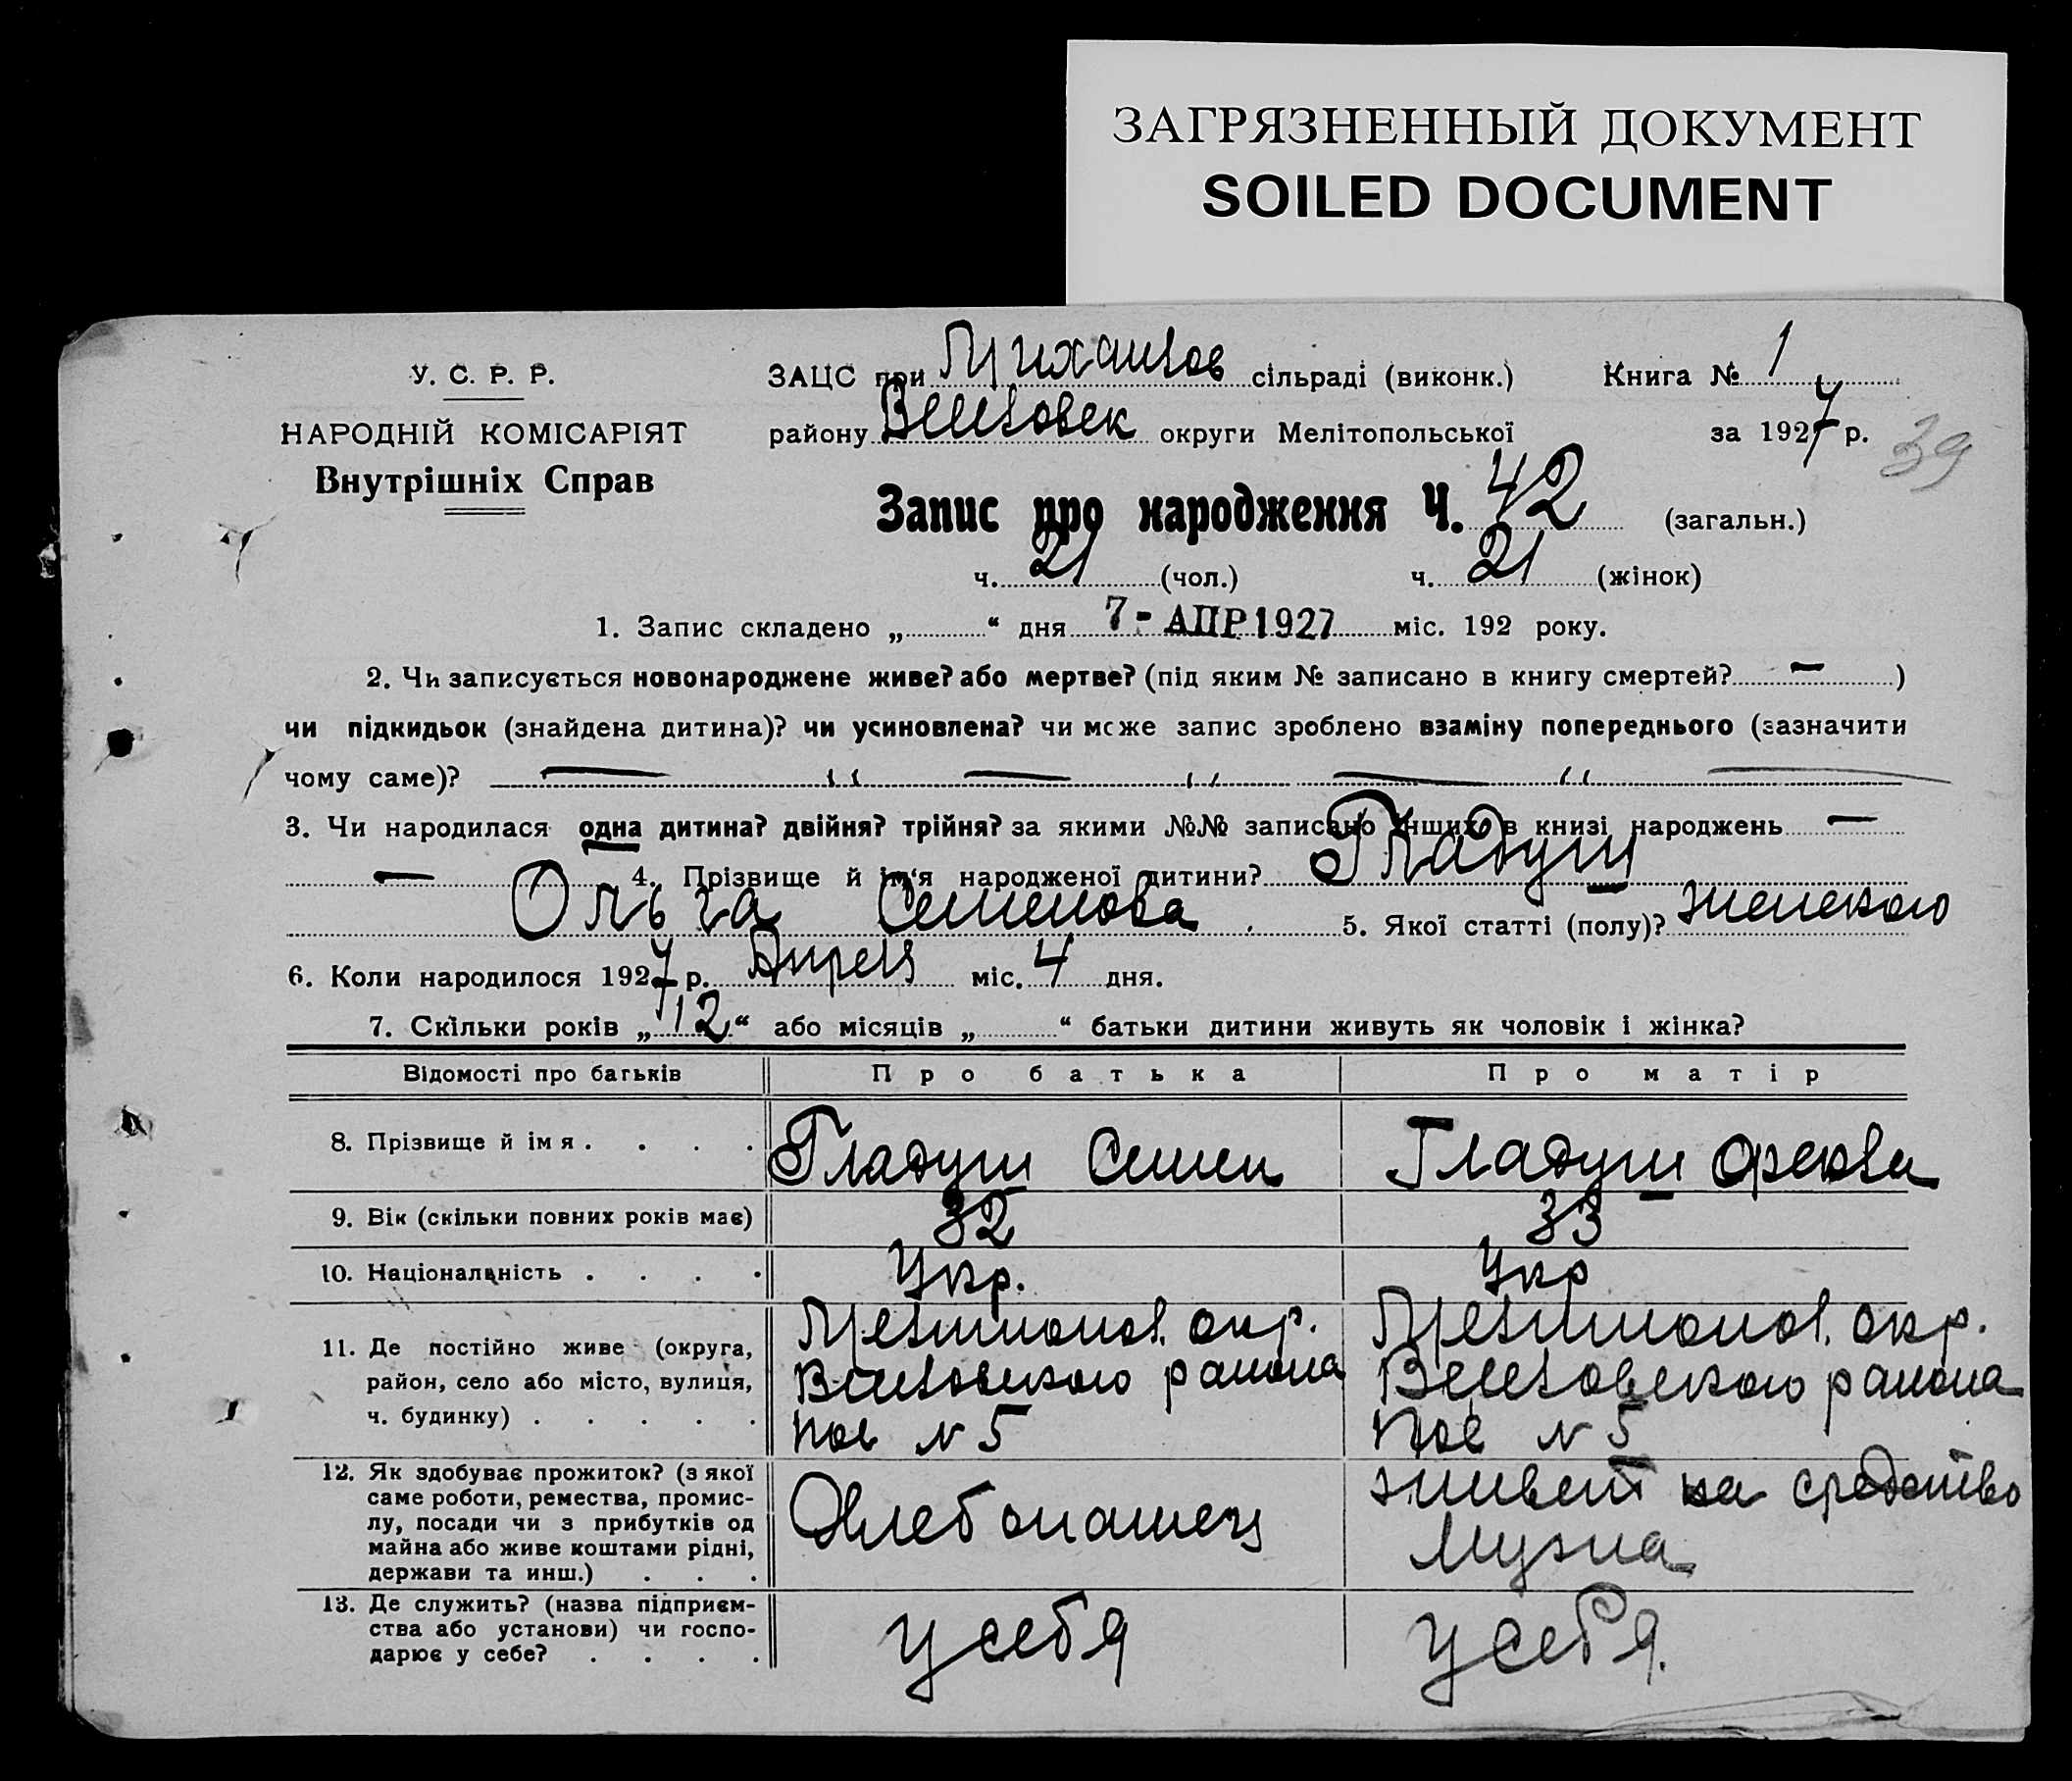 ЗАГРЯЗНЕННЫЙ ДОКУМЕНТ
SOILED DOCUMENT
У. С. Р. Р.
НАРОДНІЙ КОМІСАРІЯТ
Внутрішніх Справ
ЗАЦС при Михайлов сільраді (виконк.) Книга № 1
району Веселовск округи Мелітопольської за 1927 р.
39
Запис про народження Ч. 42 (загальн.)
ч. 21 (чол.) ч. 21 (жінок)
1. Запис складено „ “ дня 7 - АПР 1927 міс. 192 року.
2. Чи записується новонароджене живе? або мертве? (під яким № записано в книгу смертей? — )
чи підкидьок (знайдена дитина)? чи усиновлена? чи може запис зроблено взаміну попереднього (зазначити
чому саме)? — „ — „ — „ —
3. Чи народилася одна дитина? двійня? трійня? за якими №№ записано інших в книзі народжень —
— 4. Прізвище й ім‘я народженої дитини? Гладуш
Ольга Семенова 5. Якої статті (полу)? женского
6. Коли народилося 1927 р. Апреля міс. 4 дня.
7. Скільки років „ 12 “ або місяців „ “ батьки дитини живуть як чоловік і жінка?
Відомості про батьків Про батька Про матір
8. Прізвище й імя . . . . Гладуш Семен Гладуш
9. Вік (скільки повних років має) 32 33
10. Національність . . . . Укр. Укр
11. Де постійно живе (округа, район, село або місто, вулиця, ч. будинку) . . . . .
Мелитопол. окр. Мелитопол. окр.
Веселовского района Веселовского района
пос N 5 Пос N 5
12. Як здобуває прожиток? (з якої саме роботи, ремества, промислу, посади чи з прибутків од майна або живе коштами рідні, держави та инш.) . . .
Хлебопашец живет на средство
Мужа
13. Де служить? (назва підприємства або установи) чи господарює у себе? . . . .
у себя у себя.